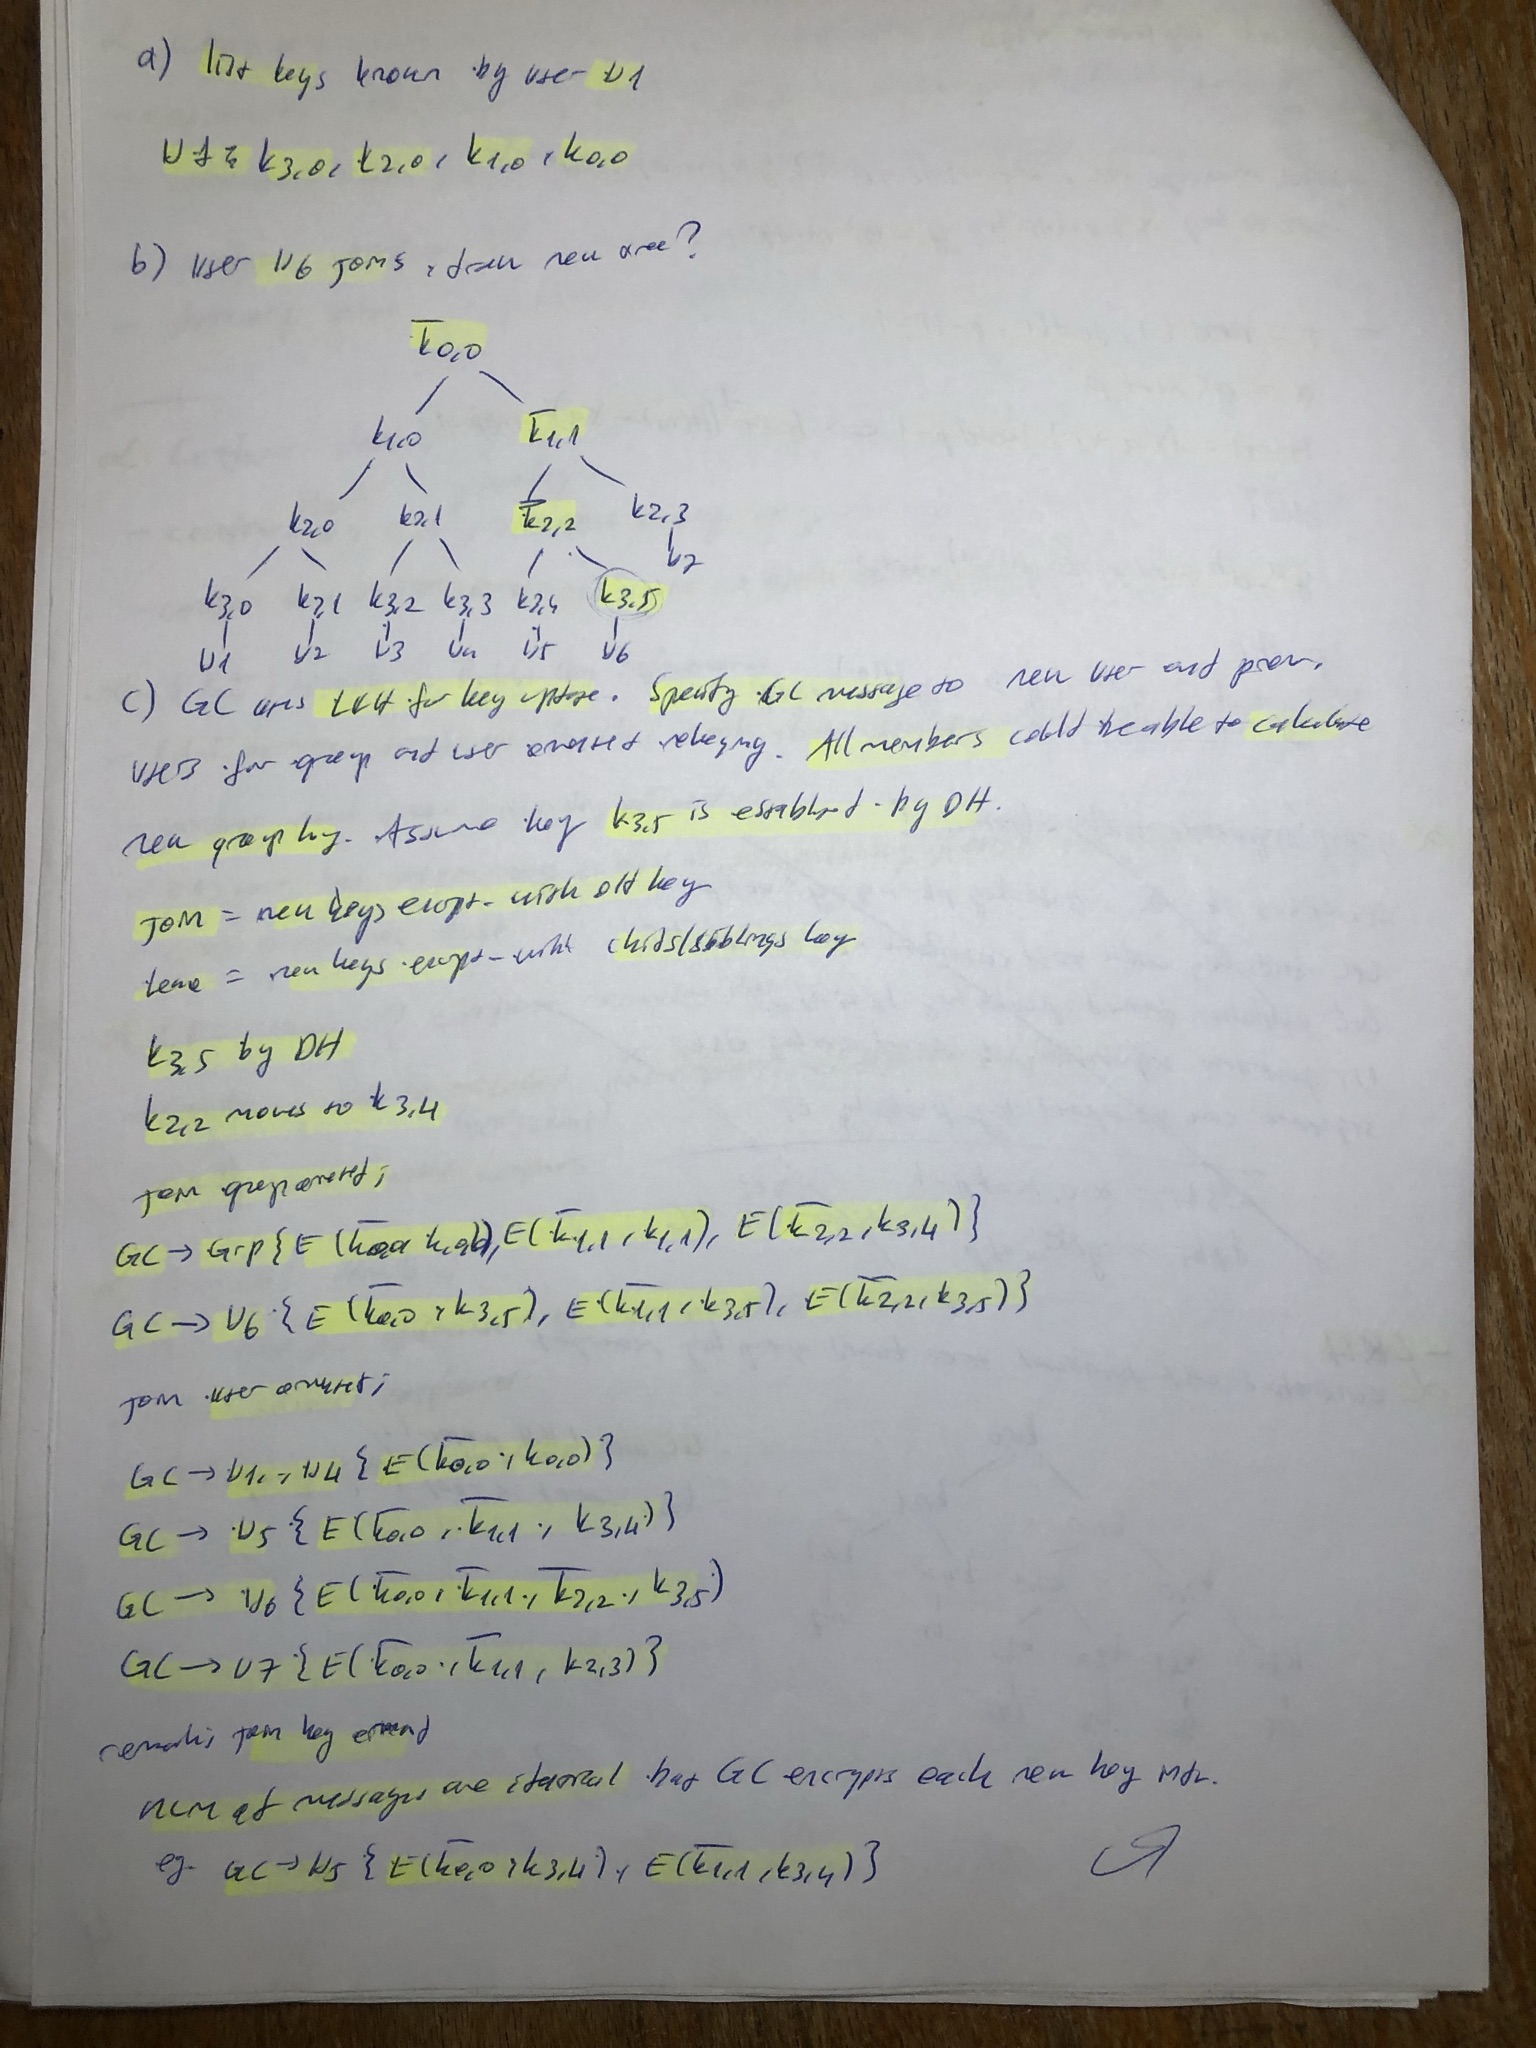 a) list keys known by user U1
U1: k3,0, k2,0, k1,0, k0,0
b) User U6 joins, draw new tree?
k̅0,0
k1,0 k̅1,1
k2,0 k2,1 k̅2,2 k2,3
U7
k3,0 k3,1 k3,2 k3,3 k3,4 k3,5
U1 U2 U3 U4 U5 U6
c) GC uses LKH for key update. Specify GC message to new user and prev.
users for group and user oriented rekeying. All members could be able to calculate
new group key. Assume key k3,5 is established by DH.
join = new keys encrypt. with old key
leave = new keys encrypt. with childs/siblings key
k3,5 by DH
k2,2 moves to k3,4
join group oriented;
GC → Grp {E(k̅0,0, k0,0), E(k̅1,1, k1,1), E(k̅2,2, k3,4)}
GC → U6 {E(k̅0,0, k3,5), E(k̅1,1, k3,5), E(k̅2,2, k3,5)}
join user oriented;
GC → U1,..,U4 {E(k̅0,0, k0,0)}
GC → U5 {E(k̅0,0, k̅1,1, k3,4)}
GC → U6 {E(k̅0,0, k̅1,1, k̅2,2, k3,5)
GC → U7 {E(k̅0,0, k̅1,1, k2,3)}
join key
num of messages are identical but GC encrypts each new key
eg. GC → U5 {E(k̅0,0, k3,4), E(k̅1,1, k3,4)}